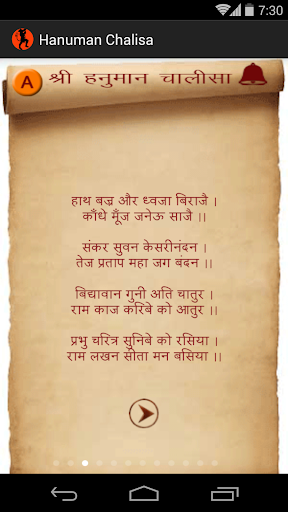 7:30
Hanuman Chalisa
A श्री हनुमान चालीसा
हाथ बज्र और ध्वजा बिराजै ।
काँधे मूँज जनेऊ साजै ।।
संकर सुवन केसरीनंदन ।
तेज प्रताप महा जग बंदन ।।
बिद्यावान गुनी अति चातुर ।
राम काज करिबे को आतुर ।।
प्रभु चरित्र सुनिबे को रसिया ।
राम लखन सीता मन बसिया ।।